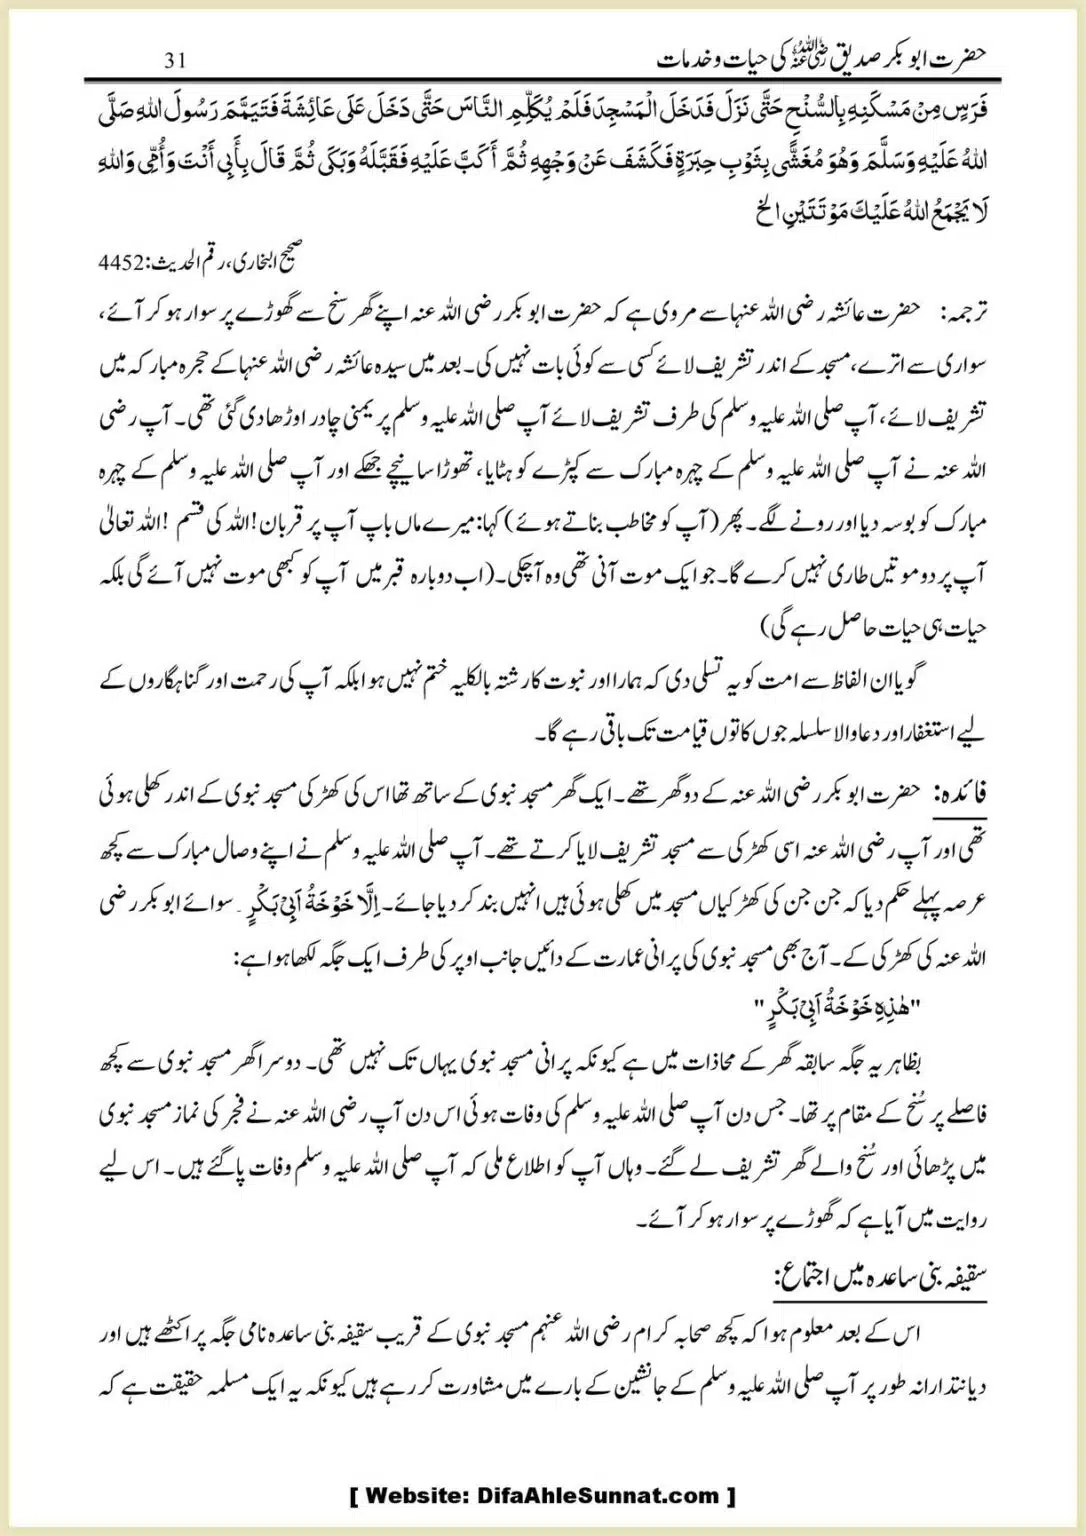 حضرت ابو بکر صدیق رضی اللہ عنہ کی حیات و خدمات 31
فَرَسٍ مِنْ مَسْكَنِهِ بِالسُّنْحِ حَتَّى نَزَلَ فَدَخَلَ الْمَسْجِدَ فَلَمْ يُكَلِّمِ النَّاسَ حَتَّى دَخَلَ عَلَى عَائِشَةَ فَتَيَمَّمَ رَسُولَ اللهِ صَلَّى
اللهُ عَلَيْهِ وَسَلَّمَ وَهُوَ مُغَشًّى بِثَوْبِ حِبَرَةٍ فَكَشَفَ عَنْ وَجْهِهِ ثُمَّ أَكَبَّ عَلَيْهِ فَقَبَّلَهُ وَبَكَى ثُمَّ قَالَ بِأَبِي أَنْتَ وَأُمِّي وَاللهِ
لَا يَجْمَعُ اللهُ عَلَيْكَ مَوْتَتَيْنِ الخ
صحیح البخاری، رقم الحدیث: 4452
ترجمہ: حضرت عائشہ رضی اللہ عنہا سے مروی ہے کہ حضرت ابو بکر رضی اللہ عنہ اپنے گھر سنح سے گھوڑے پر سوار ہو کر آئے،
سواری سے اترے، مسجد کے اندر تشریف لائے کسی سے کوئی بات نہیں کی۔ بعد میں سیدہ عائشہ رضی اللہ عنہا کے حجرہ مبارکہ میں
تشریف لائے، آپ صلی اللہ علیہ وسلم کی طرف تشریف لائے آپ صلی اللہ علیہ وسلم پر یمنی چادر اوڑھا دی گئی تھی۔ آپ رضی
اللہ عنہ نے آپ صلی اللہ علیہ وسلم کے چہرہ مبارک سے کپڑے کو ہٹایا، تھوڑا سا نیچے جھکے اور آپ صلی اللہ علیہ وسلم کے چہرہ
مبارک کو بوسہ دیا اور رونے لگے۔ پھر (آپ کو مخاطب بناتے ہوئے) کہا: میرے ماں باپ آپ پر قربان! اللہ کی قسم ! اللہ تعالیٰ
آپ پر دو موتیں طاری نہیں کرے گا۔ جو ایک موت آنی تھی وہ آچکی۔ (اب دوبارہ قبر میں آپ کو کبھی موت نہیں آئے گی بلکہ
حیات ہی حیات حاصل رہے گی)
گویا ان الفاظ سے امت کو یہ تسلی دی کہ ہمارا اور نبوت کا رشتہ بالکلیہ ختم نہیں ہوا بلکہ آپ کی رحمت اور گناہگاروں کے
لیے استغفار اور دعا والا سلسلہ جوں کا توں قیامت تک باقی رہے گا۔
فائدہ: حضرت ابو بکر رضی اللہ عنہ کے دو گھر تھے۔ ایک گھر مسجد نبوی کے ساتھ تھا اس کی کھڑکی مسجد نبوی کے اندر کھلی ہوئی
تھی اور آپ رضی اللہ عنہ اسی کھڑکی سے مسجد تشریف لایا کرتے تھے۔ آپ صلی اللہ علیہ وسلم نے اپنے وصال مبارک سے کچھ
عرصہ پہلے حکم دیا کہ جن جن کی کھڑکیاں مسجد میں کھلی ہوئی ہیں انہیں بند کر دیا جائے۔ اِلَّا خَوْخَةُ اَبِيْ بَكْرٍ۔ سوائے ابو بکر رضی
اللہ عنہ کی کھڑکی کے۔ آج بھی مسجد نبوی کی پرانی عمارت کے دائیں جانب اوپر کی طرف ایک جگہ لکھا ہوا ہے:
"هٰذِهِ خَوْخَةُ اَبِيْ بَكْرٍ"
بظاہر یہ جگہ سابقہ گھر کے محاذات میں ہے کیونکہ پرانی مسجد نبوی یہاں تک نہیں تھی۔ دوسرا گھر مسجد نبوی سے کچھ
فاصلے پر سُنح کے مقام پر تھا۔ جس دن آپ صلی اللہ علیہ وسلم کی وفات ہوئی اس دن آپ رضی اللہ عنہ نے فجر کی نماز مسجد نبوی
میں پڑھائی اور سُنح والے گھر تشریف لے گئے۔ وہاں آپ کو اطلاع ملی کہ آپ صلی اللہ علیہ وسلم وفات پا گئے ہیں۔ اس لیے
روایت میں آیا ہے کہ گھوڑے پر سوار ہو کر آئے۔
سقیفہ بنی ساعدہ میں اجتماع:
اس کے بعد معلوم ہوا کہ کچھ صحابہ کرام رضی اللہ عنہم مسجد نبوی کے قریب سقیفہ بنی ساعدہ نامی جگہ پر اکٹھے ہیں اور
دیانتدارانہ طور پر آپ صلی اللہ علیہ وسلم کے جانشین کے بارے میں مشاورت کر رہے ہیں کیونکہ یہ ایک مسلمہ حقیقت ہے کہ
[ Website: DifaAhleSunnat.com ]